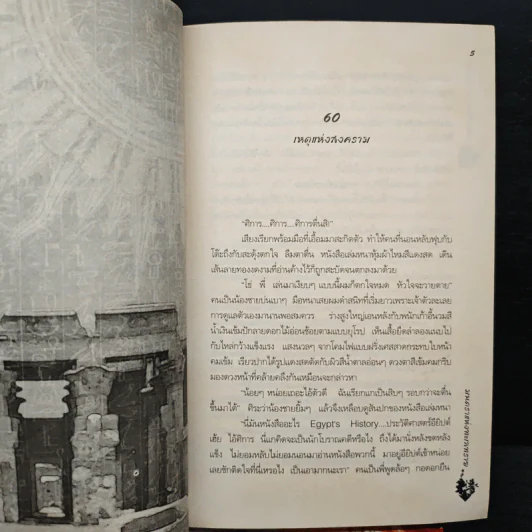 5
60
เหตุแห่งสงคราม
"ศิการ...ศิการ...ศิการตื่นสิ!"
เสียงเรียกพร้อมมือที่เอื้อมมาสะกิดตัว ทำให้คนที่นอนหลับฟุบกับ
โต๊ะถึงกับสะดุ้งตกใจ ลืมตาตื่น หนังสือเล่มหนาหุ้มผ้าไหมสีแดงสด เดิน
เส้นลายทองงดงามที่อ่านค้างไว้ก็ถูกสะบัดจนตกลงมาด้วย
"โธ่ พี่ เล่นมาเงียบๆ แบบนี้ผมก็ตกใจหมด หัวใจจะวายตาย"
คนเป็นน้องชายบ่นเบาๆ มือหนาเสยผมดำสนิทที่เริ่มยาวเพราะเจ้าตัวละเลย
การดูแลตัวเองมานานพอสมควร ร่างสูงใหญ่เอนหลังกับพนักเก้าอี้นวมสี
น้ำเงินเข้มปักลายดอกไม้อ่อนช้อยตามแบบยุโรป เห็นเสื้อยืดลำลองแนบไป
กับไหล่กว้างแข็งแรง แสงนวลๆ จากโคมไฟแบบฝรั่งเศสสาดกระทบใบหน้า
คมเข้ม เรียวปากได้รูปแดงสดตัดกับผิวสีน้ำตาลอ่อนๆ ดวงตาสีเข้มคมกริบ
มองดวงหน้าที่คล้ายคลึงกันเหมือนจะกล่าวหา
"น้อยๆ หน่อยเถอะไอ้ตัวดี ฉันเรียกแกเป็นสิบๆ รอบกว่าจะตื่น
ขึ้นมาได้" ศิระว่าน้องชายยิ้มๆ แล้วจึงเหลือบดูสันปกของหนังสือเล่มหนา
"นี่มันหนังสืออะไร Egypt's History...ประวัติศาสตร์อียิปต์
เฮ้ย ไอ้ศิการ นี่แกคิดจะเป็นนักโบราณคดีหรือไง ถึงได้มานั่งหลังขดหลัง
แข็ง ไม่ยอมหลับไม่ยอมนอนมาอ่านหนังสือพวกนี้ มาอยู่อียิปต์เข้าหน่อย
เลยชักติดใจที่นี่เหรอไง เป็นเอามากนะเรา" คนเป็นพี่พูดล้อๆ กอดอกยืน